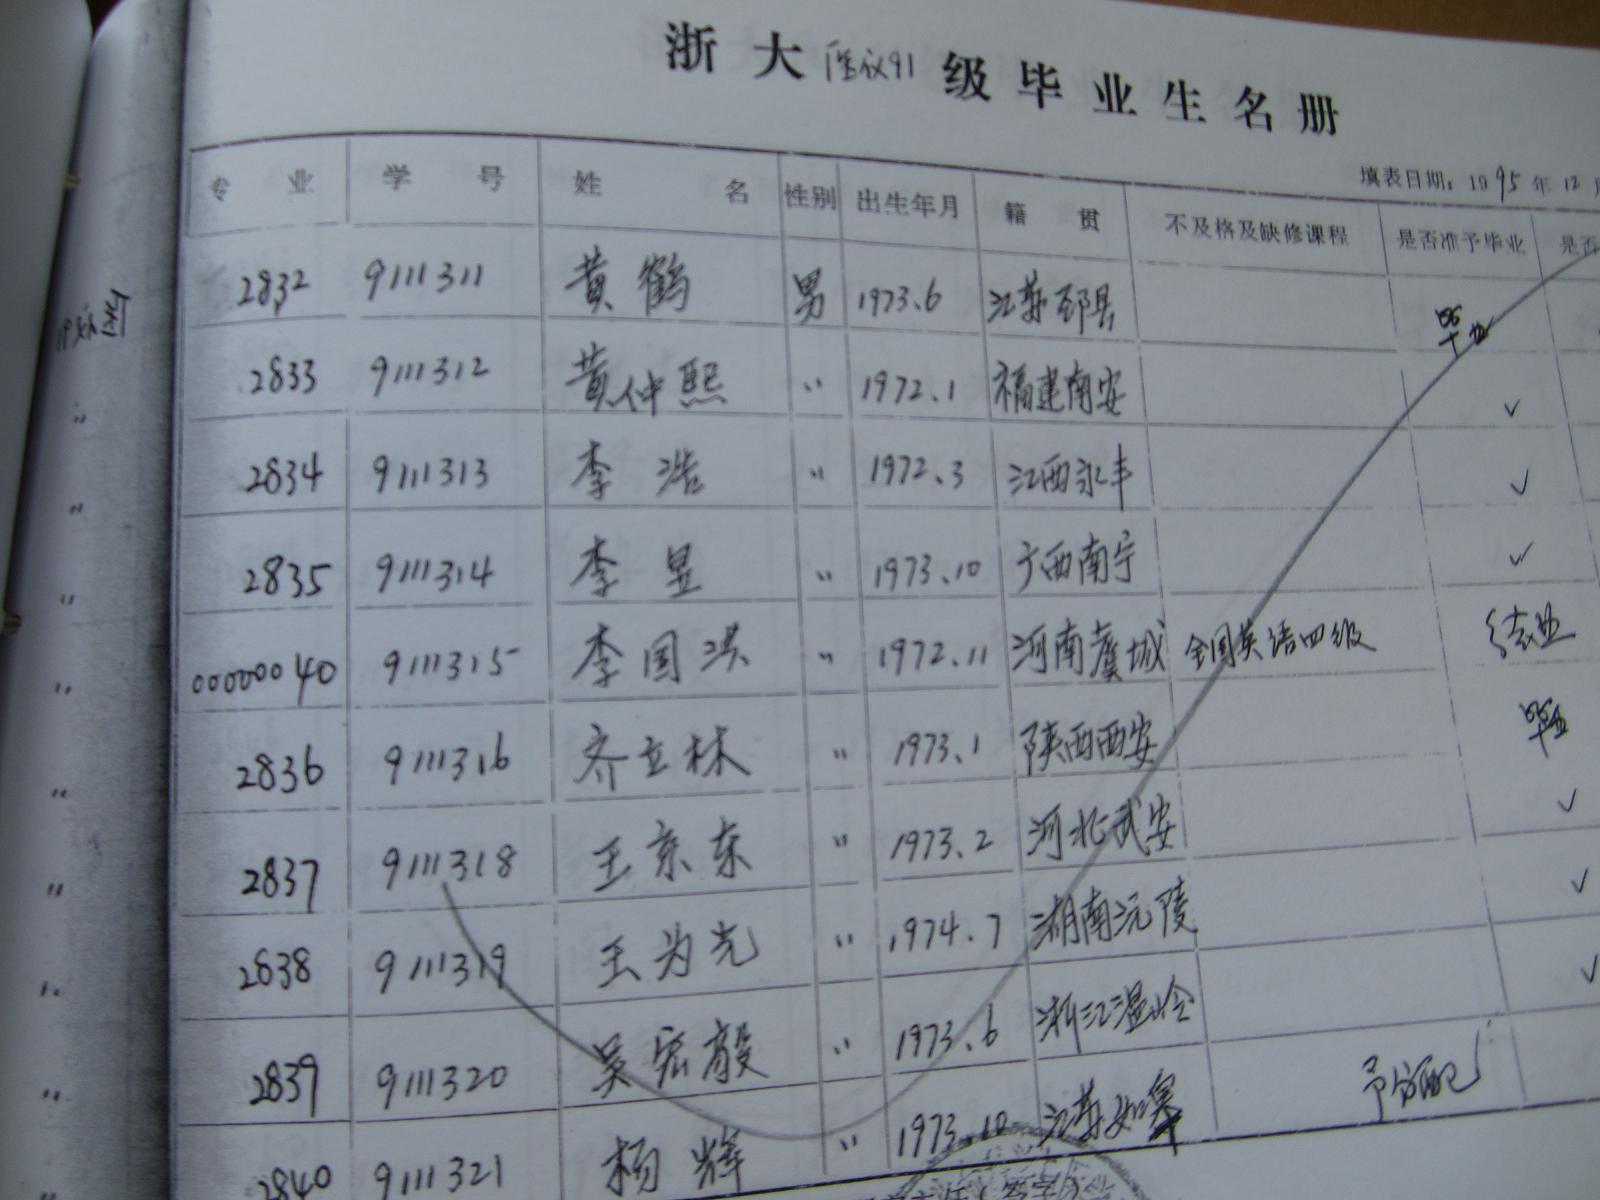 浙大医仪91级毕业生名册
填表日期：1995年12月
专业 学号 姓名 性别 出生年月 籍贯 不及格及缺修课程 是否准予毕业 是否
2832 9111311 黄鹤 男 1973.6 江苏邳县 毕业
2833 9111312 黄仲熙 〃 1972.1 福建南安 ✓
2834 9111313 李浩 〃 1972.3 江西永丰 ✓
2835 9111314 李昱 〃 1973.10 广西南宁 ✓
00000040 9111315 李国洪 〃 1972.11 河南虞城 全国英语四级 结业
2836 9111316 齐立林 〃 1973.1 陕西西安 毕业
2837 9111318 王京东 〃 1973.2 河北武安 ✓
2838 9111319 王为光 〃 1974.7 湖南沅陵 ✓
2839 9111320 吴宏毅 〃 1973.6 浙江温岭 ✓
2840 9111321 杨辉 〃 1973.10 江苏如皋 予分配